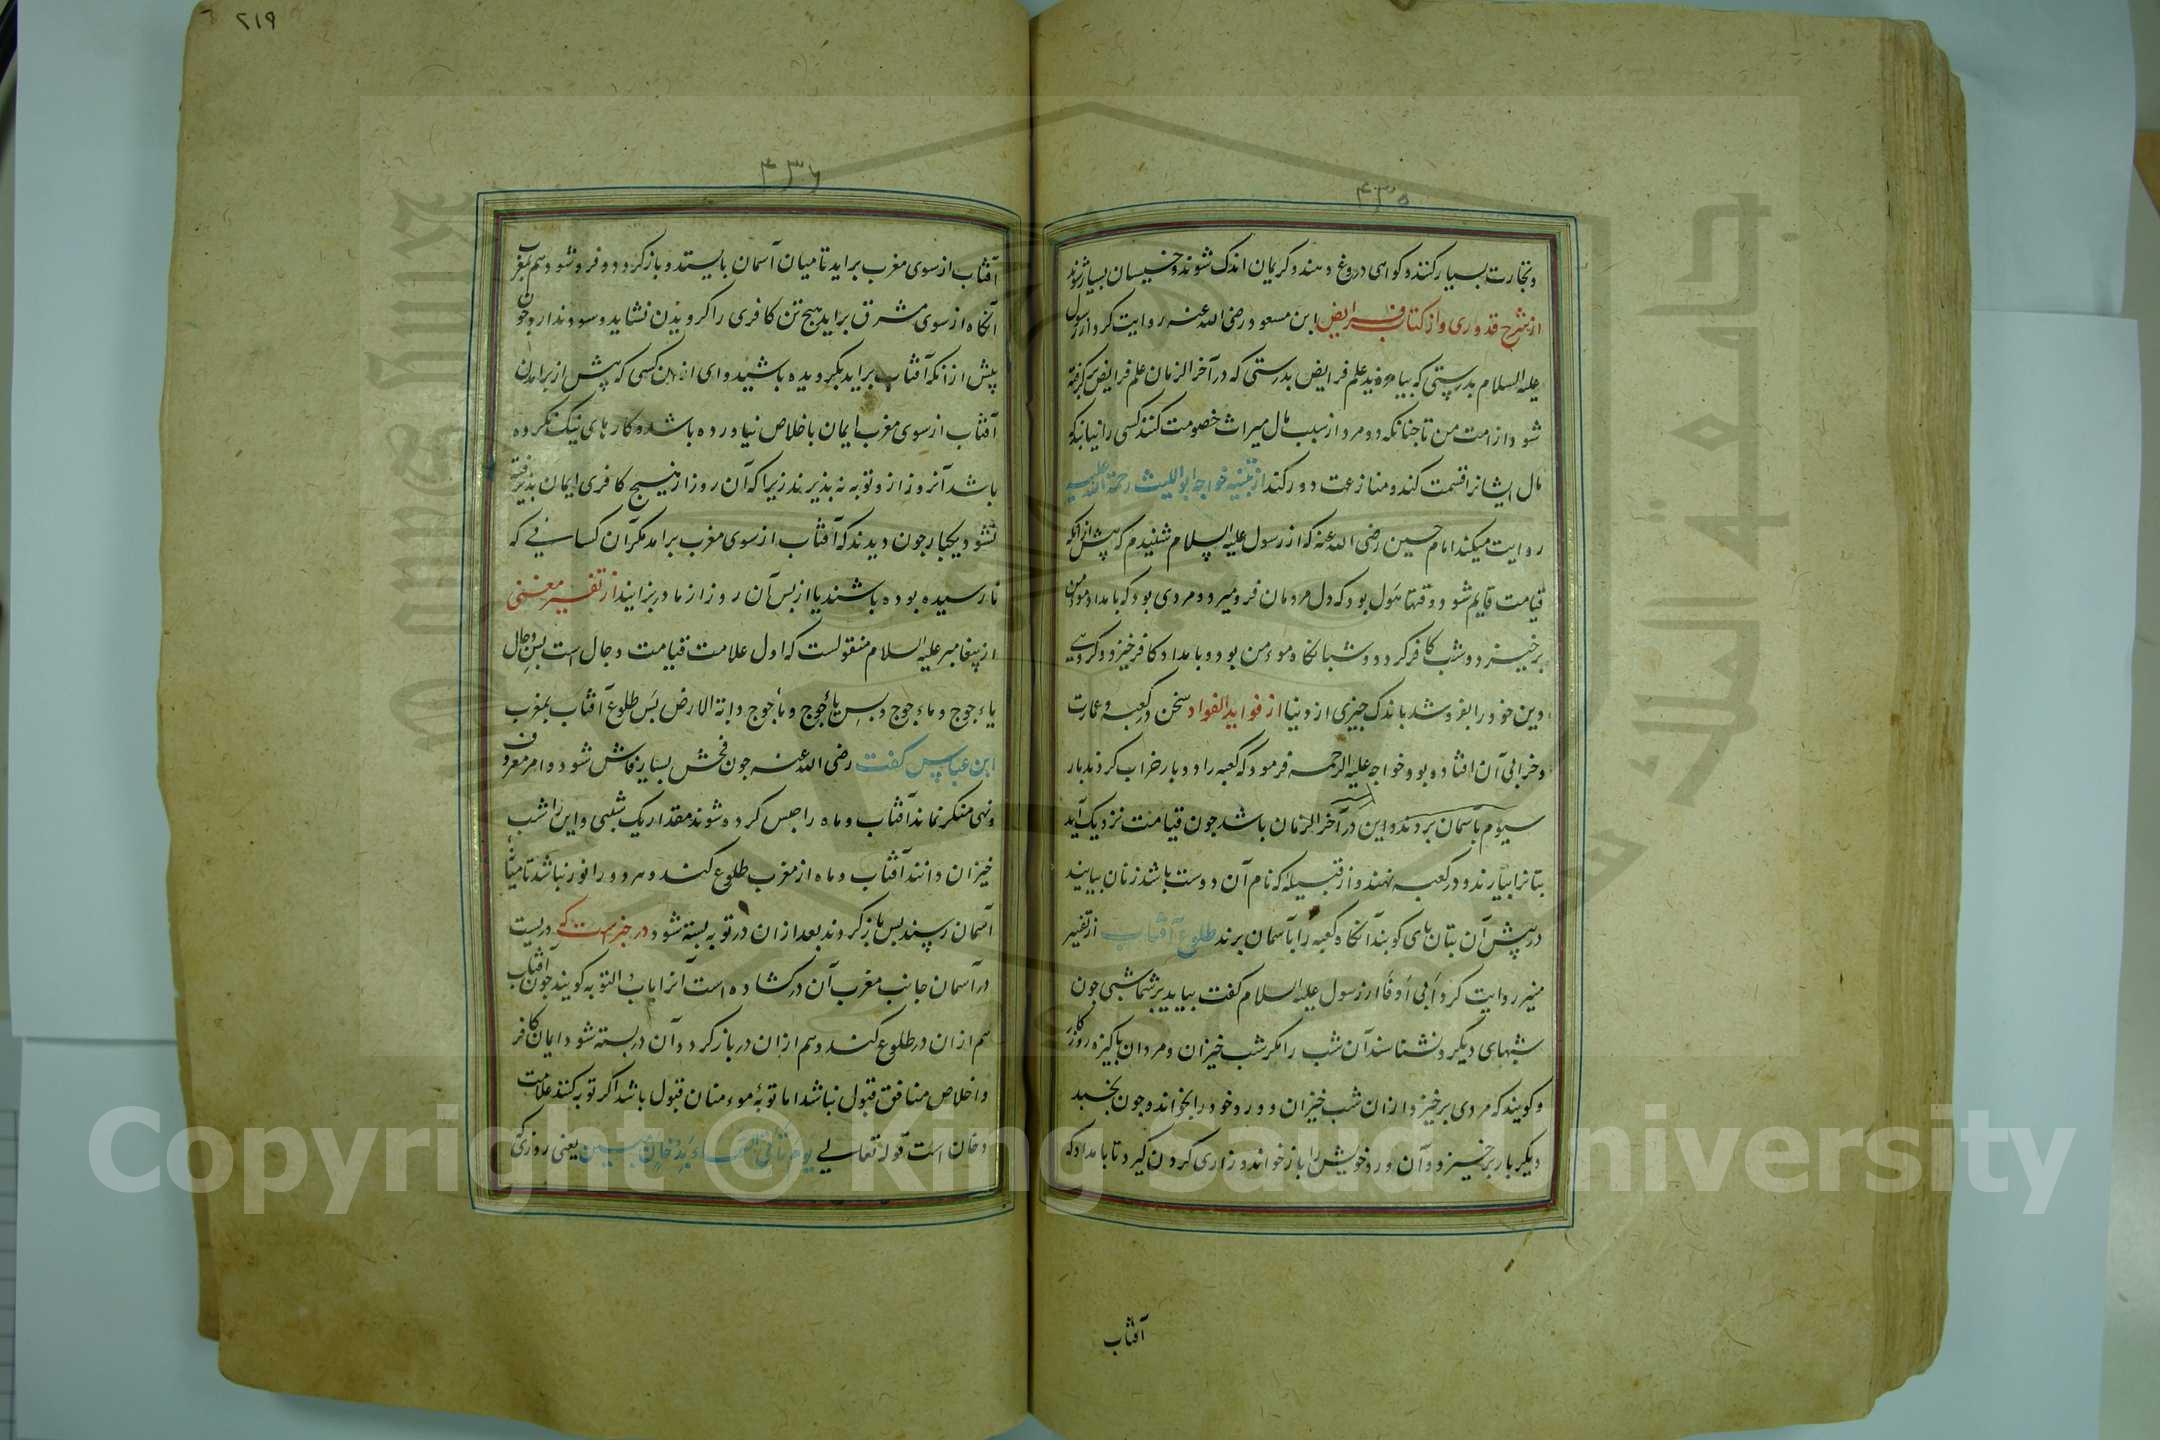 ۴۳۵
و تجارت بسیار کنند و کواهی دروغ دهند و کریمان اندک شوند و خسیسان بسیار شوند
از شرح قدوری و از کتاب فرایض ابن مسعود رضی الله عنه روایت کرد از رسول
علیه السلام بدرستی که بیاموزید علم فرایض بدرستی که در آخر الزمان علم فرایض برکرفته
شود از امت من تا جنانکه دو مرد از سبب مال میراث خصومت کنند کسی را نیابند که
مال ایشانرا قسمت کند و منازعت دور کند از تنبیه خواجه ابو اللیث رحمة الله علیه
روایت میکند امام حسین رضی الله عنه که از رسول علیه السلام شنیدم که پیش از انکه
قیامت قایم شود وقتها هول بود که دل مردمان فرو میرد و مردی بود که بامداد مومن
برخیزد و شب کافر کردد و شبانکاه موءمن بود و بامداد کافر خیزد و کروهی
دین خود را بفروشد باندک جیزی از دنیا از فواید الفواد سخن در کعبه و عمارت
و خرابی آن افتاده بود خواجه علیه الرحمه فرمود که کعبه را دو بار خراب کردند بار
سیوم باسمان بردند و این در آخر الزمان باشد جون قیامت نزدیک آید
بتانرا بیارند و در کعبه نهند و از قبیله که نام آن دوست باشد زنان بیایند
در پیش آن بتان پای کوبند آنکاه کعبه را بآسمان برند طلوع آفتاب از تفسیر
منیر روایت کرد ابی أوفا از رسول علیه السلام کفت بیاید بر شما شبی جون
شبهای دیکر و نشناسند آن شب را مکر شب خیزان و مردان پاکیزه روزکار
و کویند که مردی برخیزد از ان شب خیزان و ورد خود را بخوانده جون بخسبد
دیکر بار برخیزد و آن ورد خویش را باز خواند و زاری کردن کیرد تا بامداد که
آفتاب
۲۱۹
۴۳۶
آفتاب از سوی مغرب براید تا میان آسمان بایستد و باز کردد و فرو شود هم بمغرب
آنکاه از سوی مشرق براید هیج تن کافری را کرویدن نشاید و سود ندارد جون
پیش از انکه آفتاب براید بکرویده باشید وای از این کسی که پیش از برامدن
آفتاب از سوی مغرب ایمان باخلاص نیاورده باشد و کارهای نیک نکرده
باشد آنروز ازو توبه نه پذیرند زیرا که آن روز از هیج کافری ایمان پذیرفته
نشود یکبار جون دیدند که آفتاب از سوی مغرب برامد مکر آن کسانی که
نارسیده بوده باشند یا از پس آن روز از مادر بزایند از تفسیر مغنی
از پیغامبر علیه السلام منقولست که اول علامت قیامت دجال است پس دجال
یاءجوج و ماءجوج و پس یاءجوج و ماءجوج دابة الارض پس طلوع آفتاب بمغرب
ابن عباس کفت رضی الله عنه جون فحش بسیار فاش شود و امر معروف
و نهی منکر نماند آفتاب و ماه را حبس کرده شوند مقدار یک شبی و این را شب
خیزان دانند آفتاب و ماه از مغرب طلوع کنند و هر دو را نور نباشد تا میان
آسمان رسند پس باز کردند بعد از ان در توبه بسته شود در خبر است که دریست
در آسمان جانب مغرب آن در کشاده است آنرا باب التوبه کویند جون آفتاب
هم از ان در طلوع کند و هم از ان در باز کردد و آن در بسته شود ایمان کافر
و اخلاص منافق قبول نباشد اما توبهٔ موءمنان قبول باشد اکر توبه کنند علامت
دخان است قوله تعالی یوم تاتی السماء بدخان مبین یعنی روزی که
Copyright © King Saud University